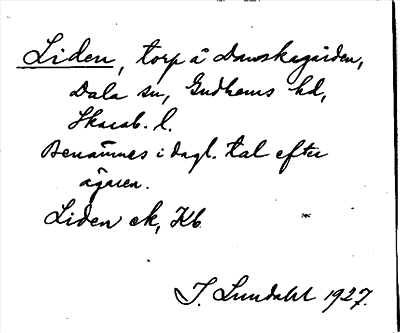 Liden, torp å Danskagården,
Dala sn, Gudhems hd,
Skarab. l.
Benämnes i dagl. tal efter
ägaren.
Liden ek, Kb
J. Lundahl 1927.